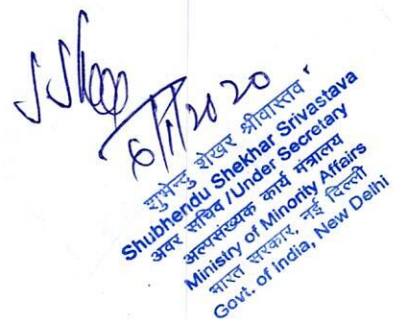 6/1/2020
शुभेन्दु शेखर श्रीवास्तव
Shubhendu Shekhar Srivastava
अवर सचिव /Under Secretary
अल्पसंख्यक कार्य मंत्रालय
Ministry of Minority Affairs
भारत सरकार, नई दिल्ली
Govt. of India, New Delhi